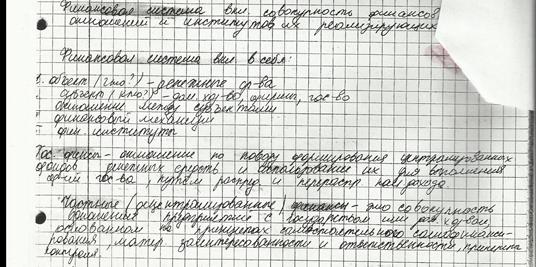 Финансовая система вкл. совокупность финансов
отношений и институтов их реализирующих
Финансовая система вкл в себя:
1. объект (что?) - денежные ср-ва
субъект (кто?) - дом. ход-во, фирмы, гос-во
отношение между субъектами
финансовый механизм
фин. институты
Гос. финансы - отношение по поводу формирования централизованных
фондов денежных средств и использование их для выполнения
гос-ва, путем распред. и перераспр нац дохода.
Частные (децентрализованные) финансы - это совокупность
отношений предприятие с государством или его ход-вом,
основанном на принципах самостоятельного самофинанси-
рования, матер. заинтересованности и ответственности, принципа
контроля.